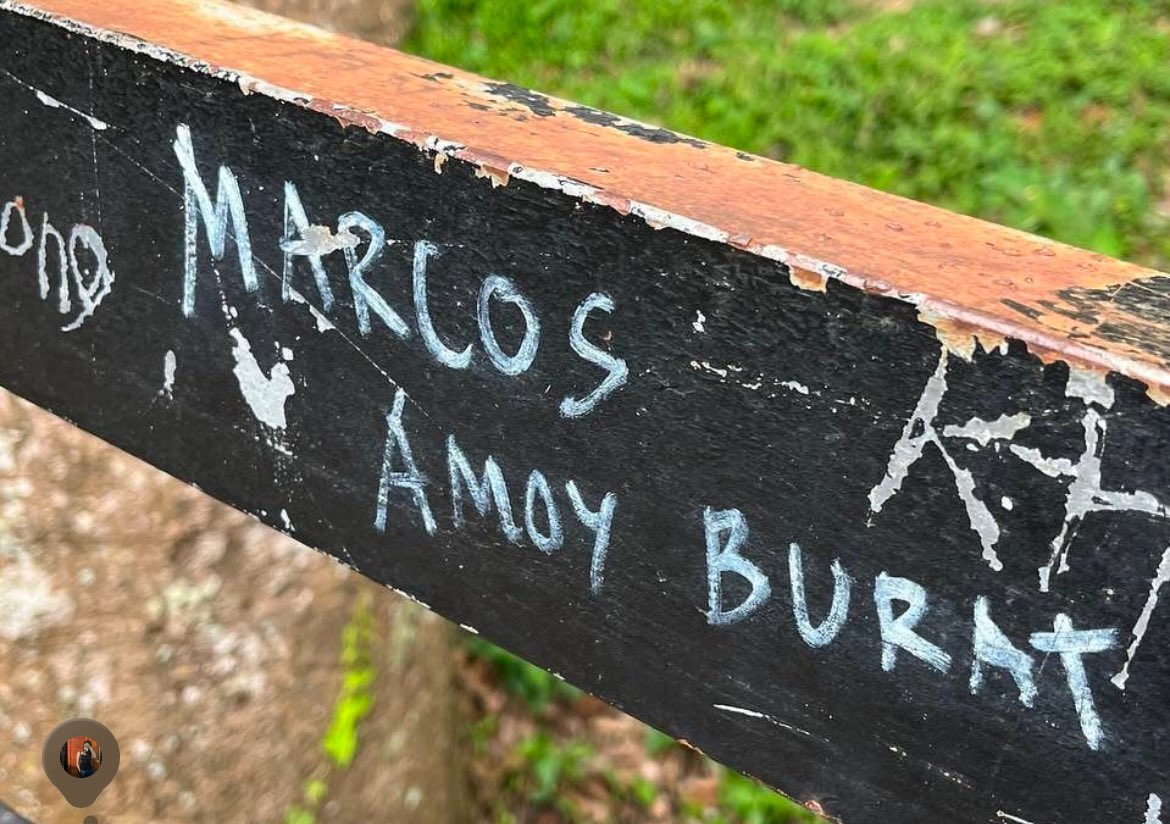 ong
MARCOS
AMOY BURAT